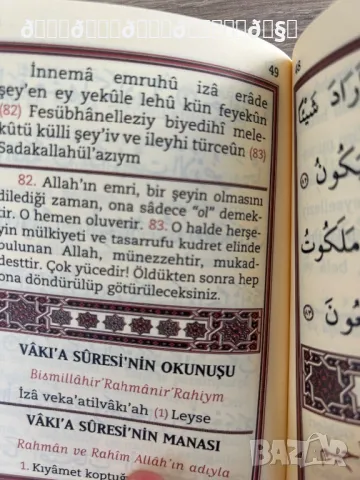 49
İnnemâ emruhû izâ erâde
şey'en ey yekûle lehû kün feyekûn
(82) Fesübhânelleziy biyedihî mele-
kûtü külli şey'iv ve ileyhi türceûn (83)
Sadakallahül'azıym
82. Allah'ın emri, bir şeyin olmasını
dilediği zaman, ona sadece "ol" demek-
tir. O hemen oluverir. 83. O halde herşe-
yin mülkiyet ve tasarrufu kudret elinde
bulunan Allah, münezzehtir, mukad-
desttir. Çok yücedir! Öldükten sonra hep
ona döndürülüp götürüleceksiniz.
VÂKI'A SÛRESİ'NİN OKUNUŞU
Bismillâhir'Rahmânir'Rahiym
İzâ veka'atilvâkı'ah (1) Leyse
VÂKI'A SÛRESİ'NİN MANASI
Rahmân ve Rahîm Allâh'ın adıyla
1. Kıyâmet koptuğ
bazar